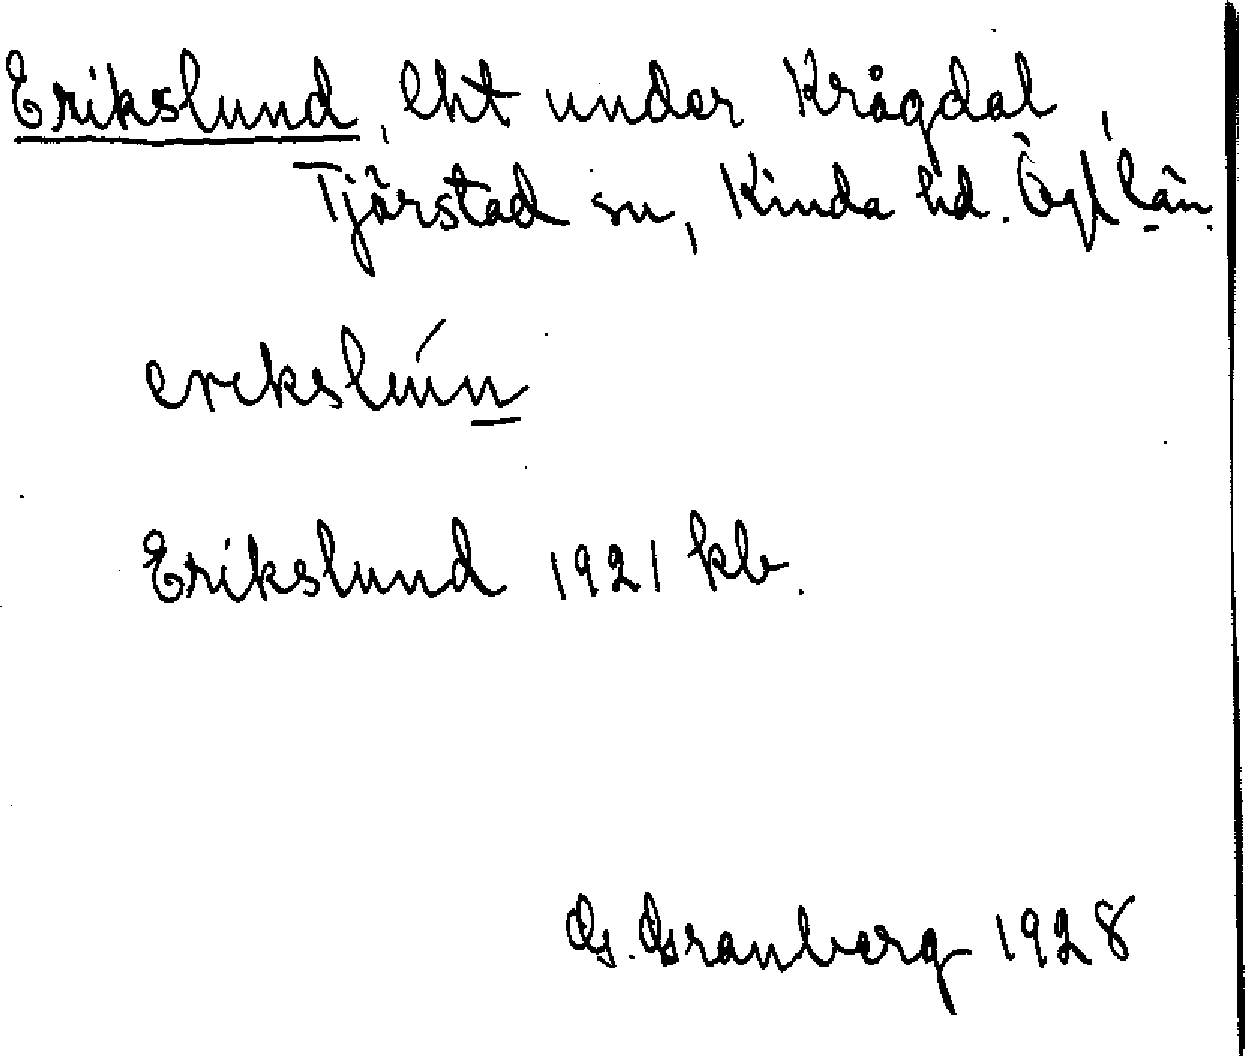 Erikslund, lht under Krågdal,
Tjärstad sn, Kinda hd. Ögl län.
erekslún
Erikslund 1921 kb.
G. Granberg 1928